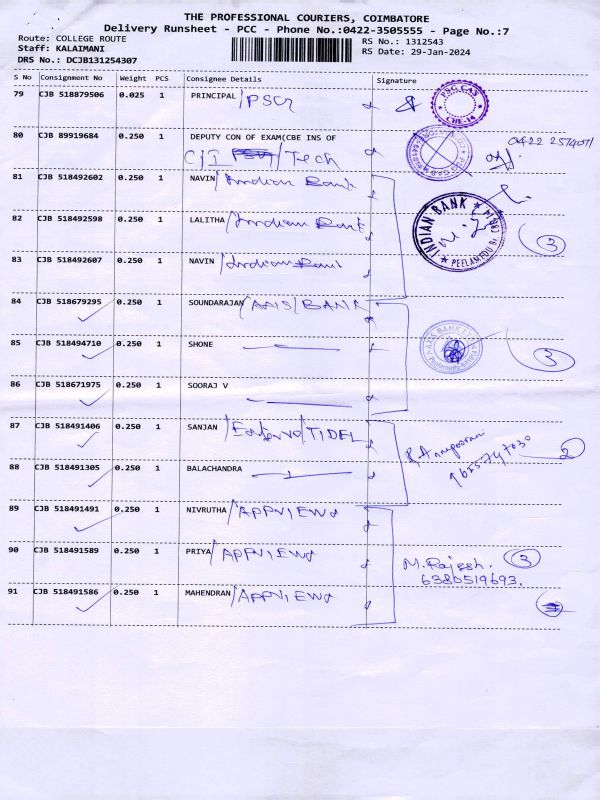 THE PROFESSIONAL COURIERS, COIMBATORE
Delivery Runsheet - PCC - Phone No.:0422-3505555 - Page No.:7
Route: COLLEGE ROUTE
Staff: KALAIMANI
DRS No.: DCJB131254307
RS No.: 1312543
RS Date: 29-Jan-2024
S No Consignment No Weight PCS Consignee Details Signature
79 CJB 518879506 0.025 1 PRINCIPAL /PSG PSG CAS CBE-14
80 CJB 89919684 0.250 1 DEPUTY CON OF EXAM(CBE INS OF
CIT /Tech
81 CJB 518492602 0.250 1 NAVIN/Indian Bank
82 CJB 518492598 0.250 1 LALITHA/Indian Bank INDIAN BANK PEELAMEDU 3
83 CJB 518492607 0.250 1 NAVIN/Indian Bank
84 CJB 518679295 0.250 1 SOUNDARAJAN/AXIS/BANK
85 CJB 518494710 0.250 1 SHONE AXIS BANK 3
86 CJB 518671975 0.250 1 SOORAJ V
87 CJB 518491406 0.250 1 SANJAN /TIDEL 2
88 CJB 518491305 0.250 1 BALACHANDRA
89 CJB 518491491 0.250 1 NIVRUTHA/APPVIEWS
90 CJB 518491589 0.250 1 PRIYA/APPVIEWS M.Rajesh. 3
6380519693.
91 CJB 518491586 0.250 1 MAHENDRAN/APPVIEWS